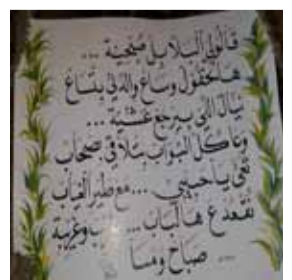 قالولي البلابل صبحية ...
هالحقول وساع والدني بتساع
نيال اللي بيرجع عشية ...
وعا كل البواب بيلاقي صحاب
تعى يا حبيبي ... مع طير الغياب
نقعد ع هالباب ... وغربة
صباح ومسا